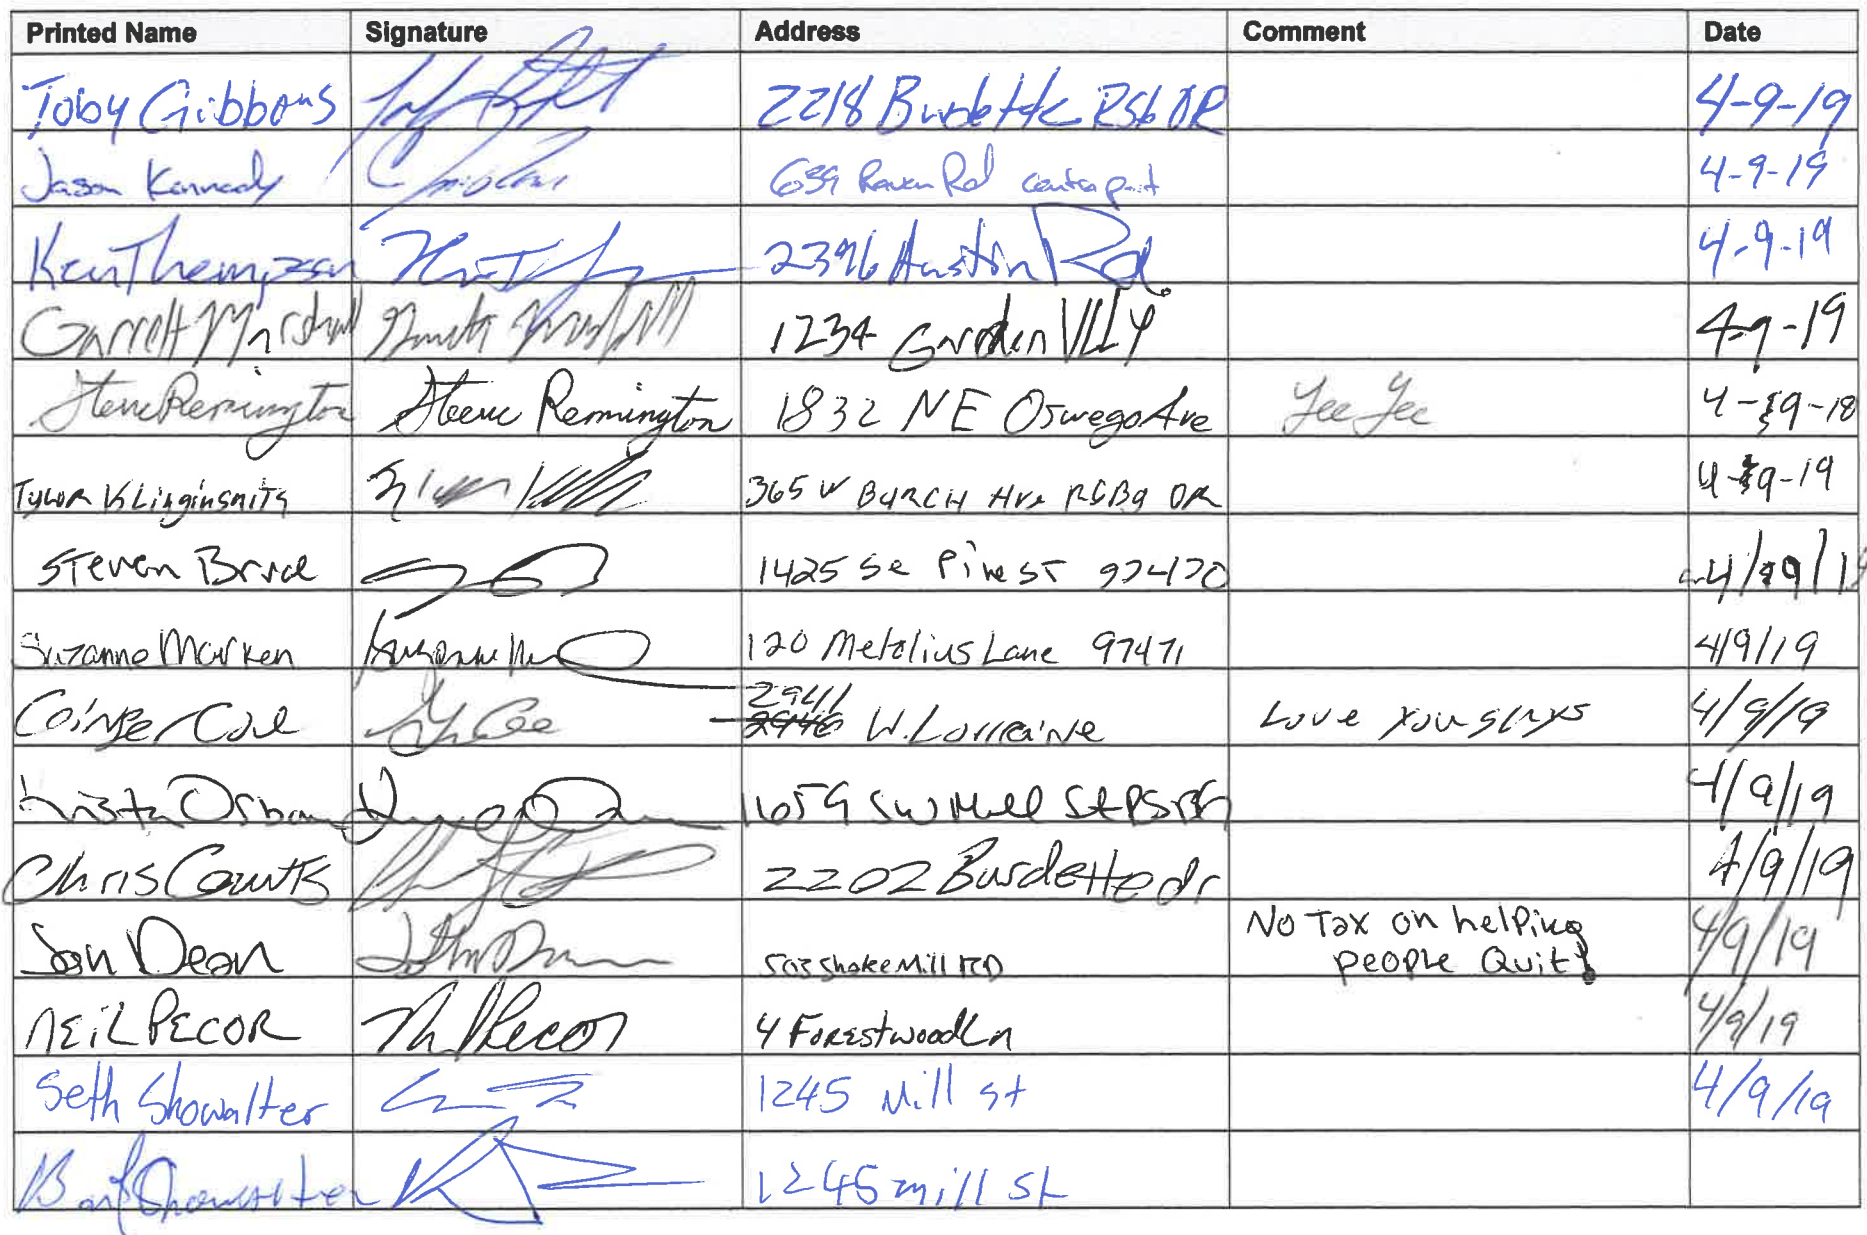 Printed Name Signature Address Comment Date
Toby Gibbons 2218 Burdette RSB OR 4-9-19
Jason Kennedy 639 Raven Rd 4-9-19
Ken Thompson 2396 Austin Rd 4-9-19
Garrett Marshall 1234 Garden VLLY 4-9-19
Steve Remington Steve Remington 1832 NE Oswego Ave Yee Yee 4-9-18
365 W BURCH Ave RSBg OR 4-9-19
Steven Bruce 1425 Se Pine ST 97470 4/9/19
Suzanne Marken 120 Metolius Lane 97471 4/9/19
2941
W. Lorraine Love you guys 4/9/19
Krista Osborn 1659 SW Mill St RSBG 4/9/19
Chris Counts 2202 Burdette dr 4/9/19
No Tax on helping
Jon Dean 503 Shake Mill RD people Quit! 4/9/19
NEIL PECOR N Pecor 4 Forestwood Ln 4/9/19
Seth Showalter 1245 Mill st 4/9/19
Showalter 1245 mill st